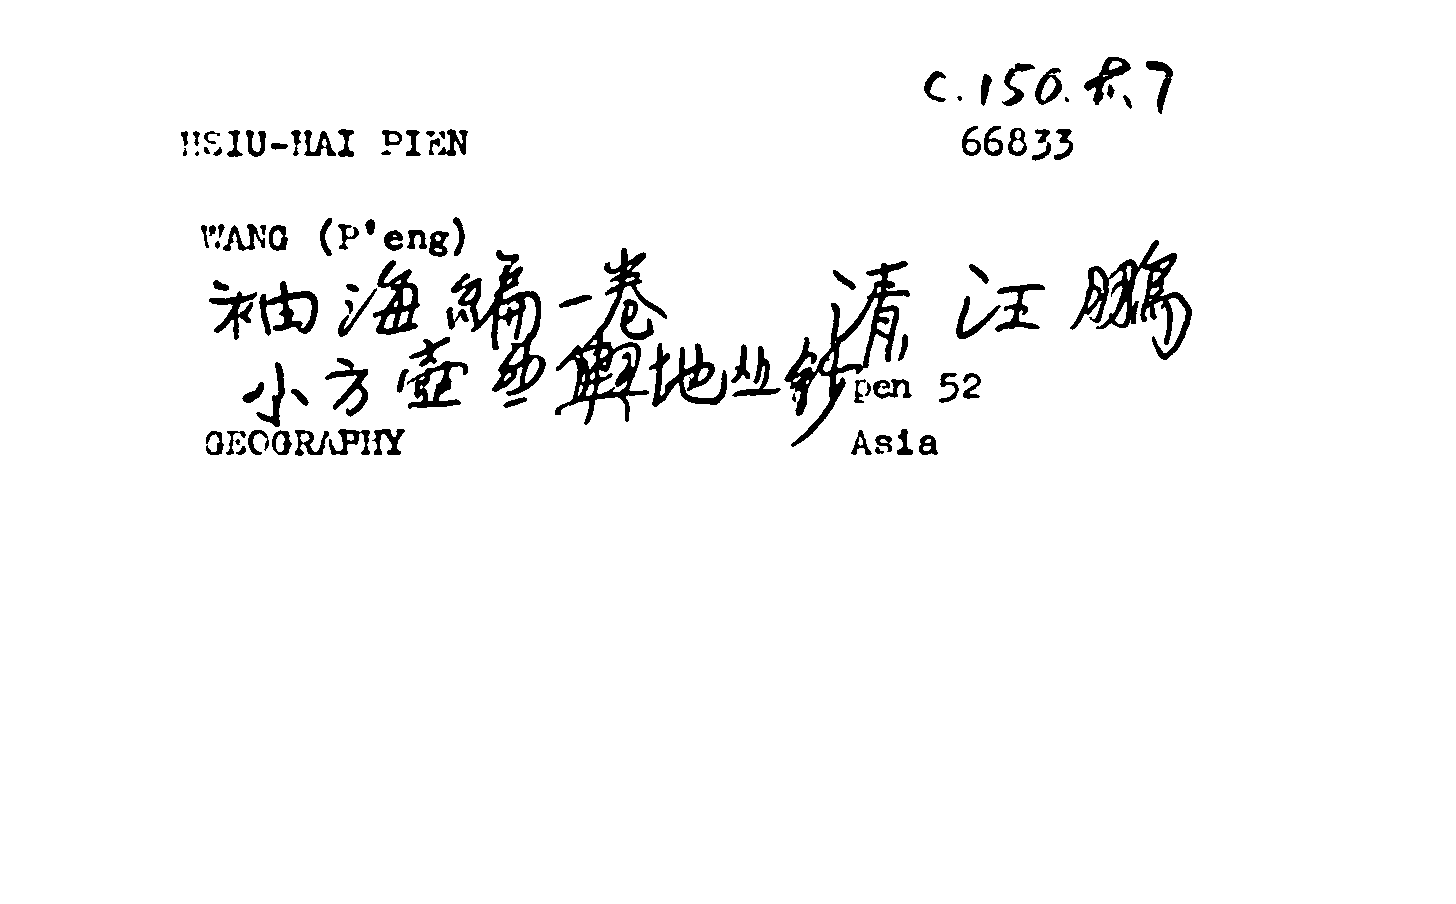 C.150.
HSIU-HAI PIEN 66833
WANG (P'eng)
袖海編一卷 清 汪鵬
小方壺 輿地丛鈔 pen 52
GEOGRAPHY Asia